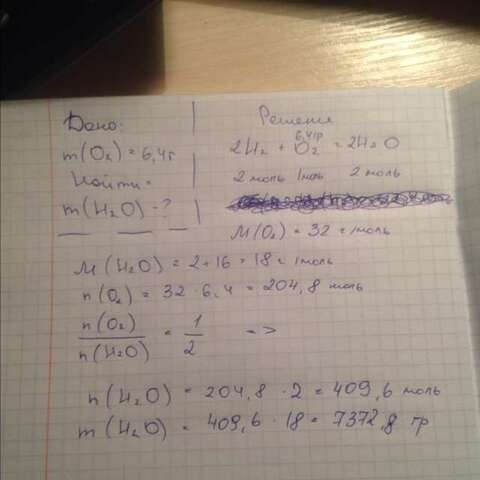 Дано:
m(O₂) = 6,4г
Найти:
m(H₂O) = ?
Решение
6,4гр
2H₂ + O₂ = 2H₂O
2 моль 1моль 2 моль
M(O₂) = 32 г/моль
M(H₂O) = 2+16 = 18 г/моль
n(O₂) = 32 · 6,4 = 204,8 моль
n(O₂)/n(H₂O) = 1/2 =>
n(H₂O) = 204,8 · 2 = 409,6 моль
m(H₂O) = 409,6 · 18 = 7372,8 гр